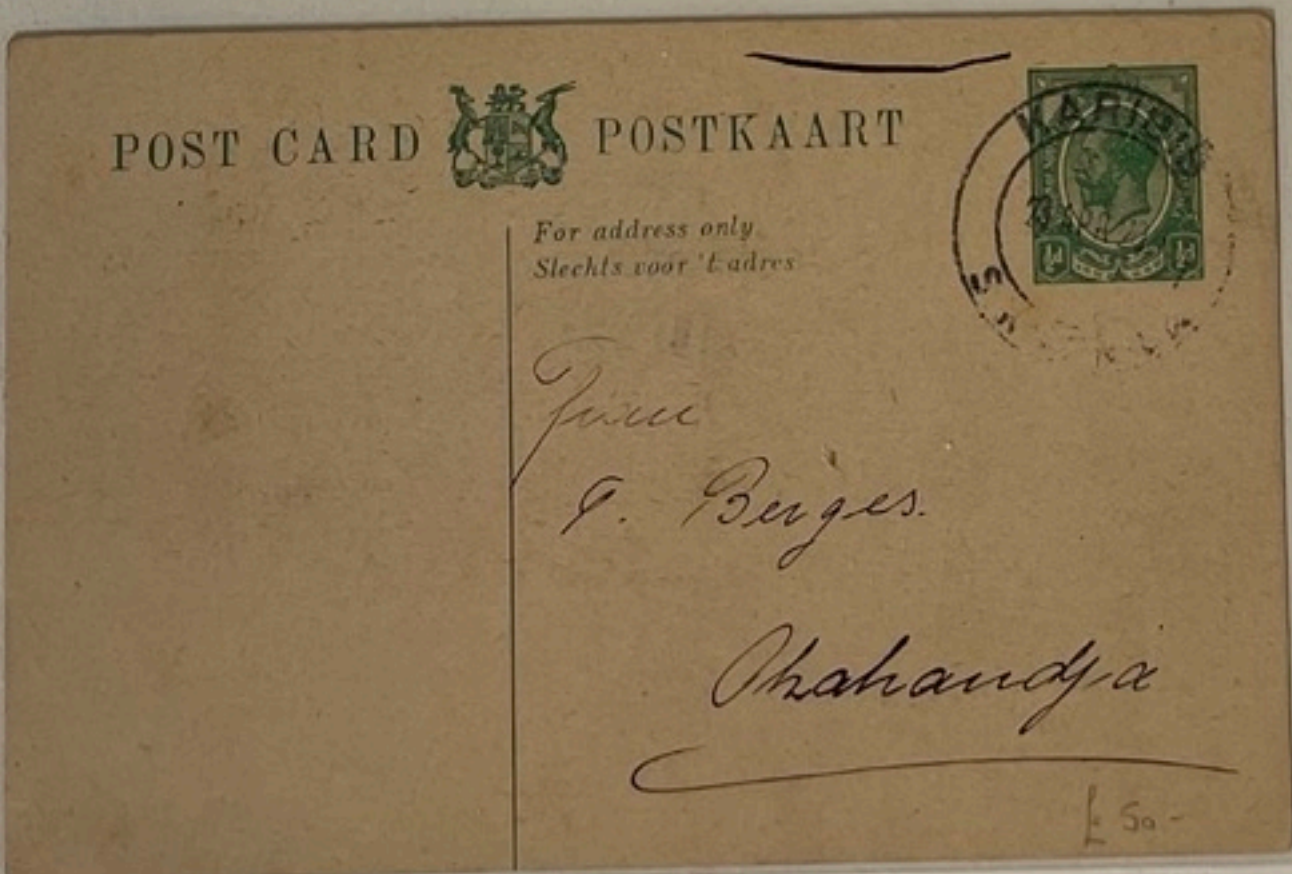 POST CARD POSTKAART
For address only.
Slechts voor 't adres
½d ½d
KARIBIB
S.W.
Frau
F. Berges.
Okahandja
£ 50-